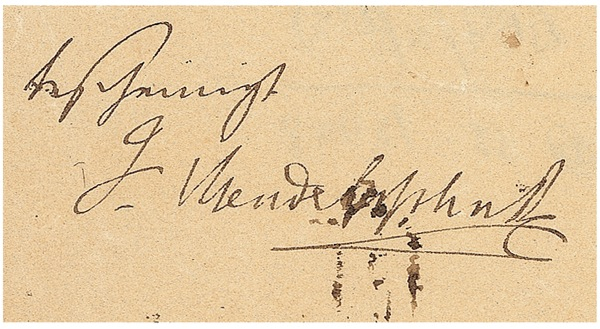 bescheinigt
Mendelssohn